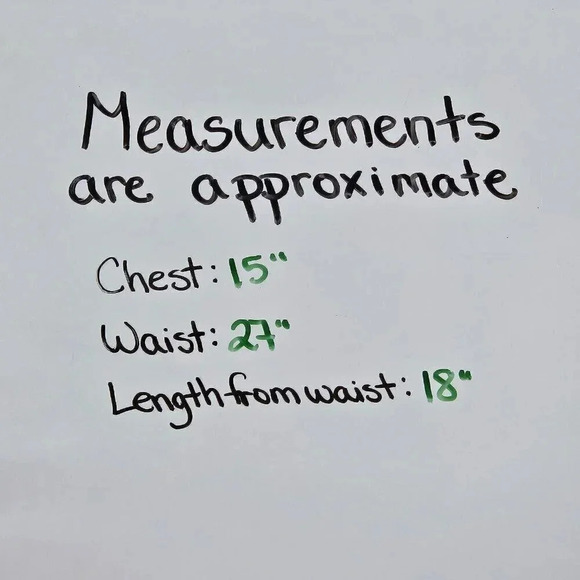 Measurements
are approximate
Chest: 15"
Waist: 27"
Length from waist: 18"